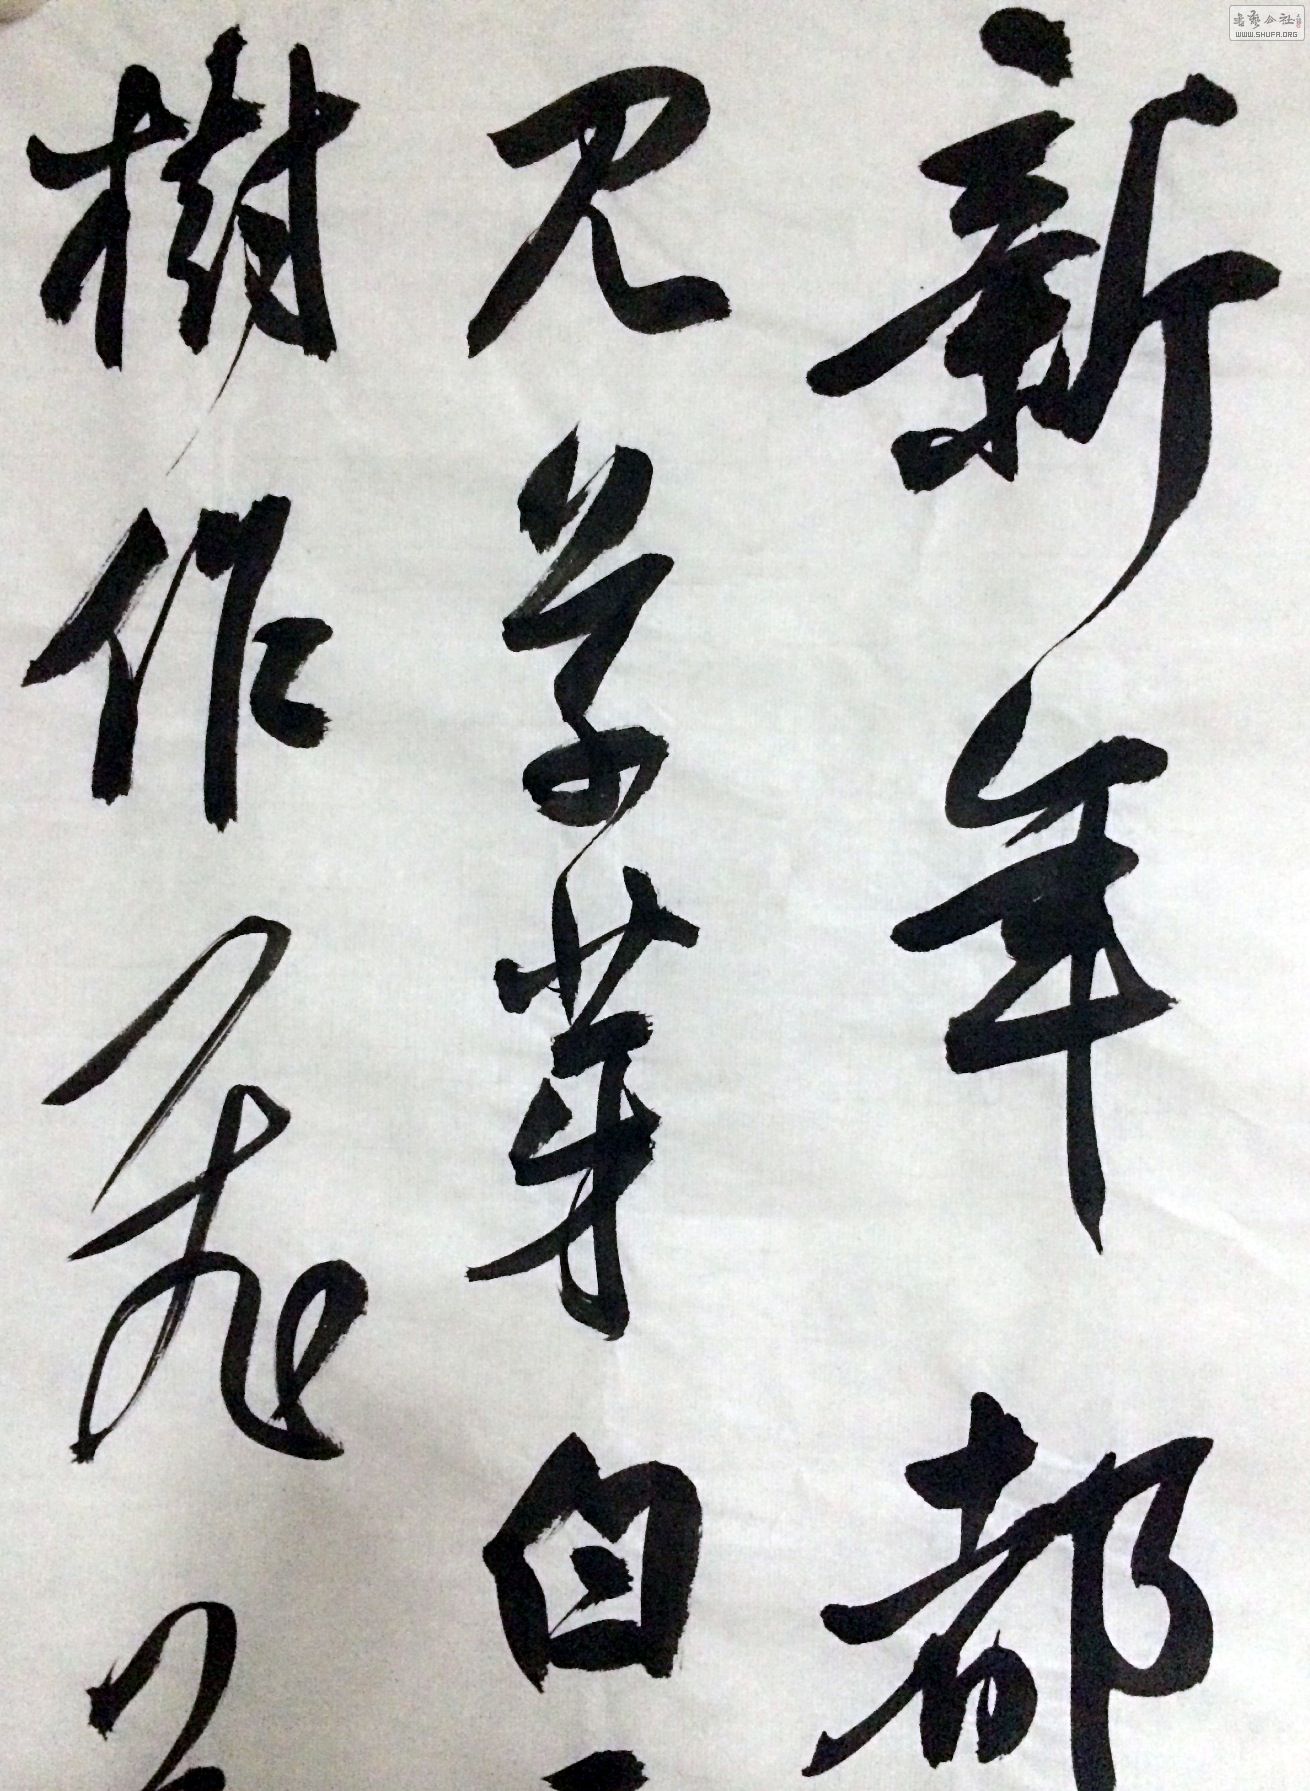 新年都
見草芽白
樹作飛
書藝公社
WWW.SHUFA.ORG